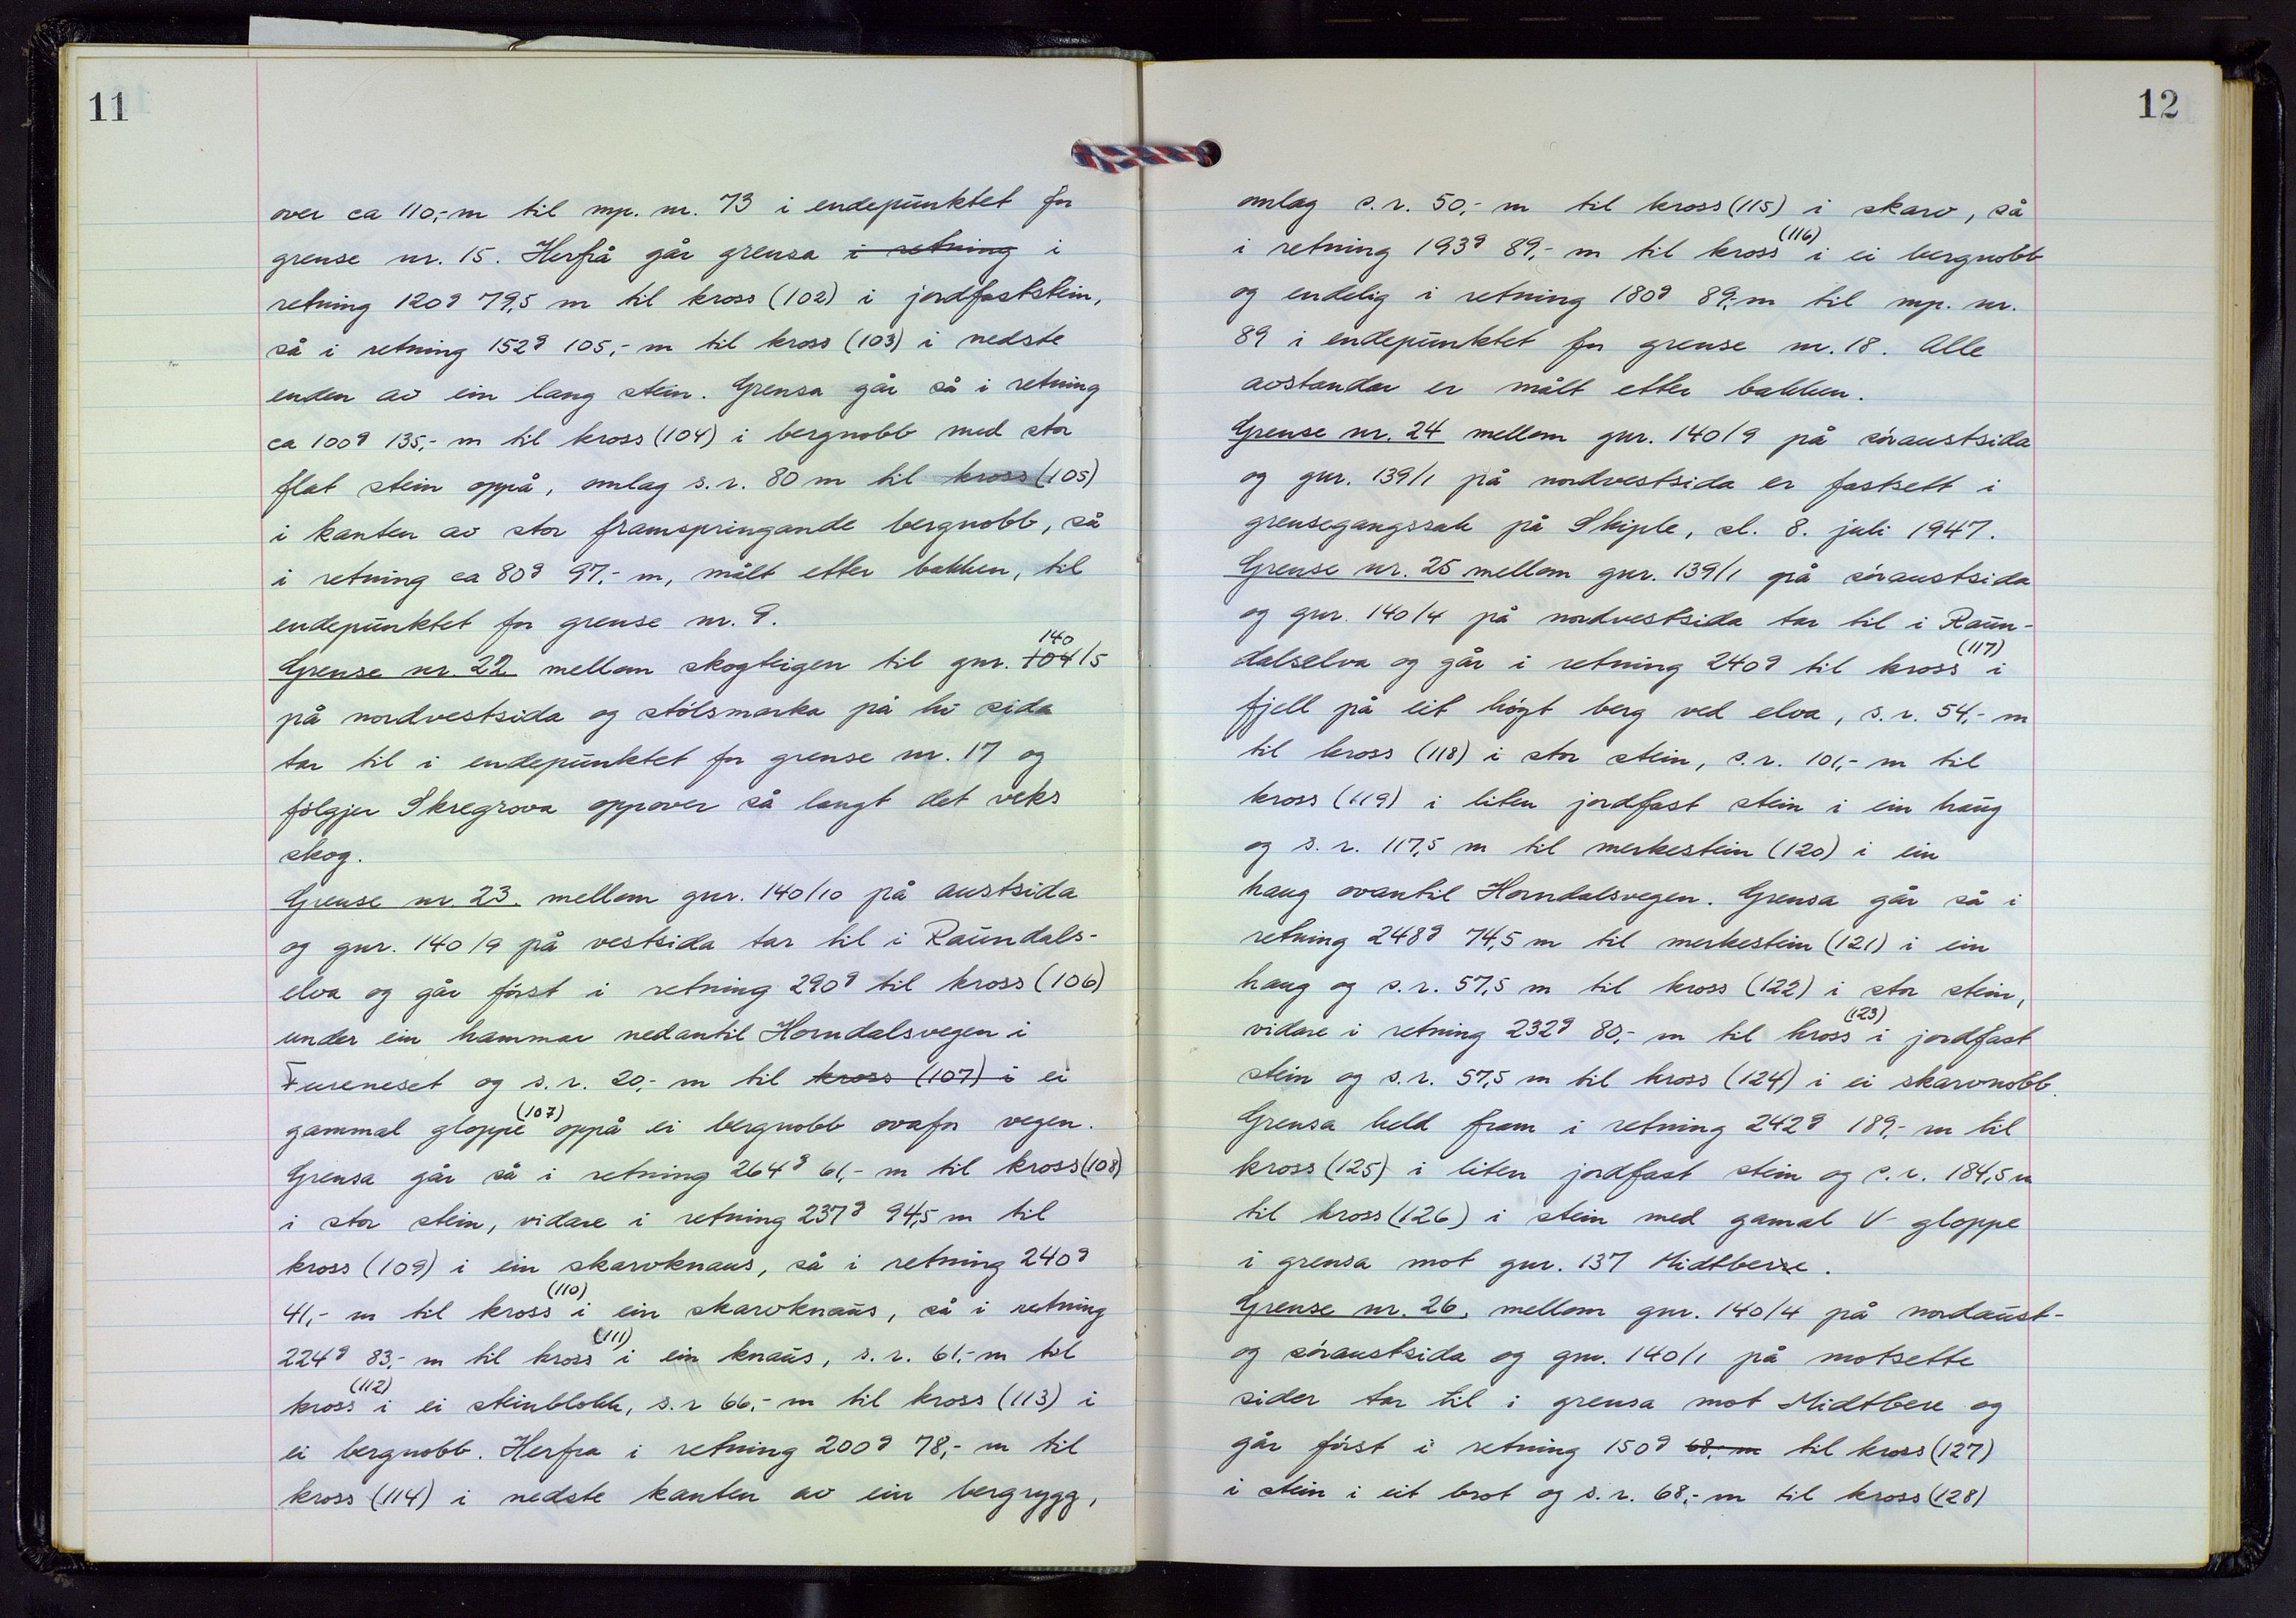 11
over ca 110,-m til mp. nr. 73 i endepunktet for
grense nr. 15. Herfrå går grensa i retning i
retning 120g 79,5 m til kross (102) i jordfaststein,
så i retning 152g 105,-m til kross (103) i nedste
enden av ein lang stein. Grensa går så i retning
ca 100g 135,-m til kross (104) i bergnobb med stor
flat stein oppå, omlag s.r. 80 m til kross (105)
i kanten av stor framspringande bergnobb, så
i retning ca 80g 97,-m, målt etter bakken, til
endepunktet for grense nr. 9.
140
Grense nr. 22 mellom skogteigen til gnr. 104/5
på nordvestsida og stölsmarka på hi sida
tar til i endepunktet for grense nr. 17 og
fölgjer Skregrova oppover så langt det veks
skog.
Grense nr. 23. mellom gnr. 140/10 på austsida
og gnr. 140/9 på vestsida tar til i Raundals-
elva og går först i retning 290g til kross (106)
under ein hammar nedantil Horndalsvegen i
Fureneset og s.r. 20,-m til kross (107) i ei
gammal gloppe (107) oppå ei bergnobb ovafor vegen.
Grensa går så i retning 264g 61,-m til kross (108)
i stor stein, vidare i retning 237g 94,5 m til
kross (109) i ein skarvknaus, så i retning 240g
41,-m til kross (110) i ein skarvknaus, så i retning
224g 83,-m til kross (111) i ein knaus, s.r. 61,-m til
kross (112) i ei steinblokk, s.r 66,-m til kross (113) i
ei bergnobb. Herfra i retning 200g 78,-m til
kross (114) i nedste kanten av ein bergrygg,
12
omlag s.r. 50,-m til kross (115) i skarv, så
i retning 193g 89,-m til kross (116) i ei bergnobb
og endelig i retning 180g 89,-m til mp. nr.
89 i endepunktet for grense nr. 18. Alle
avstandar er målt etter bakken.
Grense nr. 24 mellom gnr. 140/9 på söraustsida
og gnr. 139/1 på nordvestsida er fastsett i
grensegangssak på Skiple, sl. 8. juli 1947.
Grense nr. 25 mellom gnr. 139/1 på söraustsida
og gnr. 140/4 på nordvestsida tar til i Raun-
dalselva og går i retning 240g til kross (117) i
fjell på eit högt berg ved elva, s.r. 54,-m
til kross (118) i stor stein, s.r. 101,-m til
kross (119) i liten jordfast stein i ein haug
og s.r. 117,5 m til merkestein (120) i ein
haug ovantil Horndalsvegen. Grensa går så i
retning 248g 74,5 m til merkestein (121) i ein
haug og s.r. 57,5 m til kross (122) i stor stein,
vidare i retning 232g 80,-m til kross (123) i jordfast
stein og s.r. 57,5 m til kross (124) i ei skarvnobb.
Grensa held fram i retning 242g 189,-m til
kross (125) i liten jordfast stein og s.r. 184,5 m
til kross (126) i stein med gamal V-gloppe
i grensa mot gnr. 137 Midtbere.
Grense nr. 26, mellom gnr. 140/4 på nordaust-
og söraustsida og gnr. 140/1 på motsette
sider tar til i grensa mot Midtbere og
går först i retning 150g 68,-m til kross (127)
i stein i eit brot og s.r. 68,-m til kross (128)